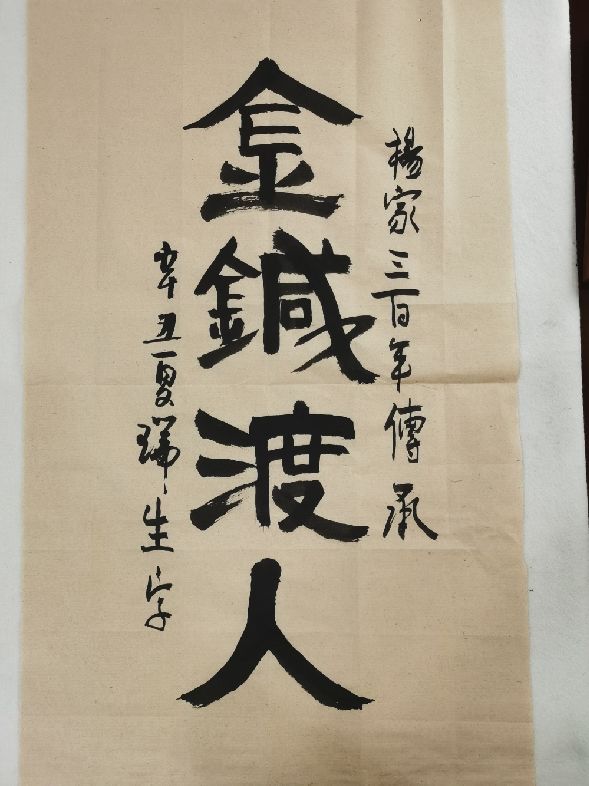 楊家三百年傳承
金鍼渡人
辛丑夏瑞生字